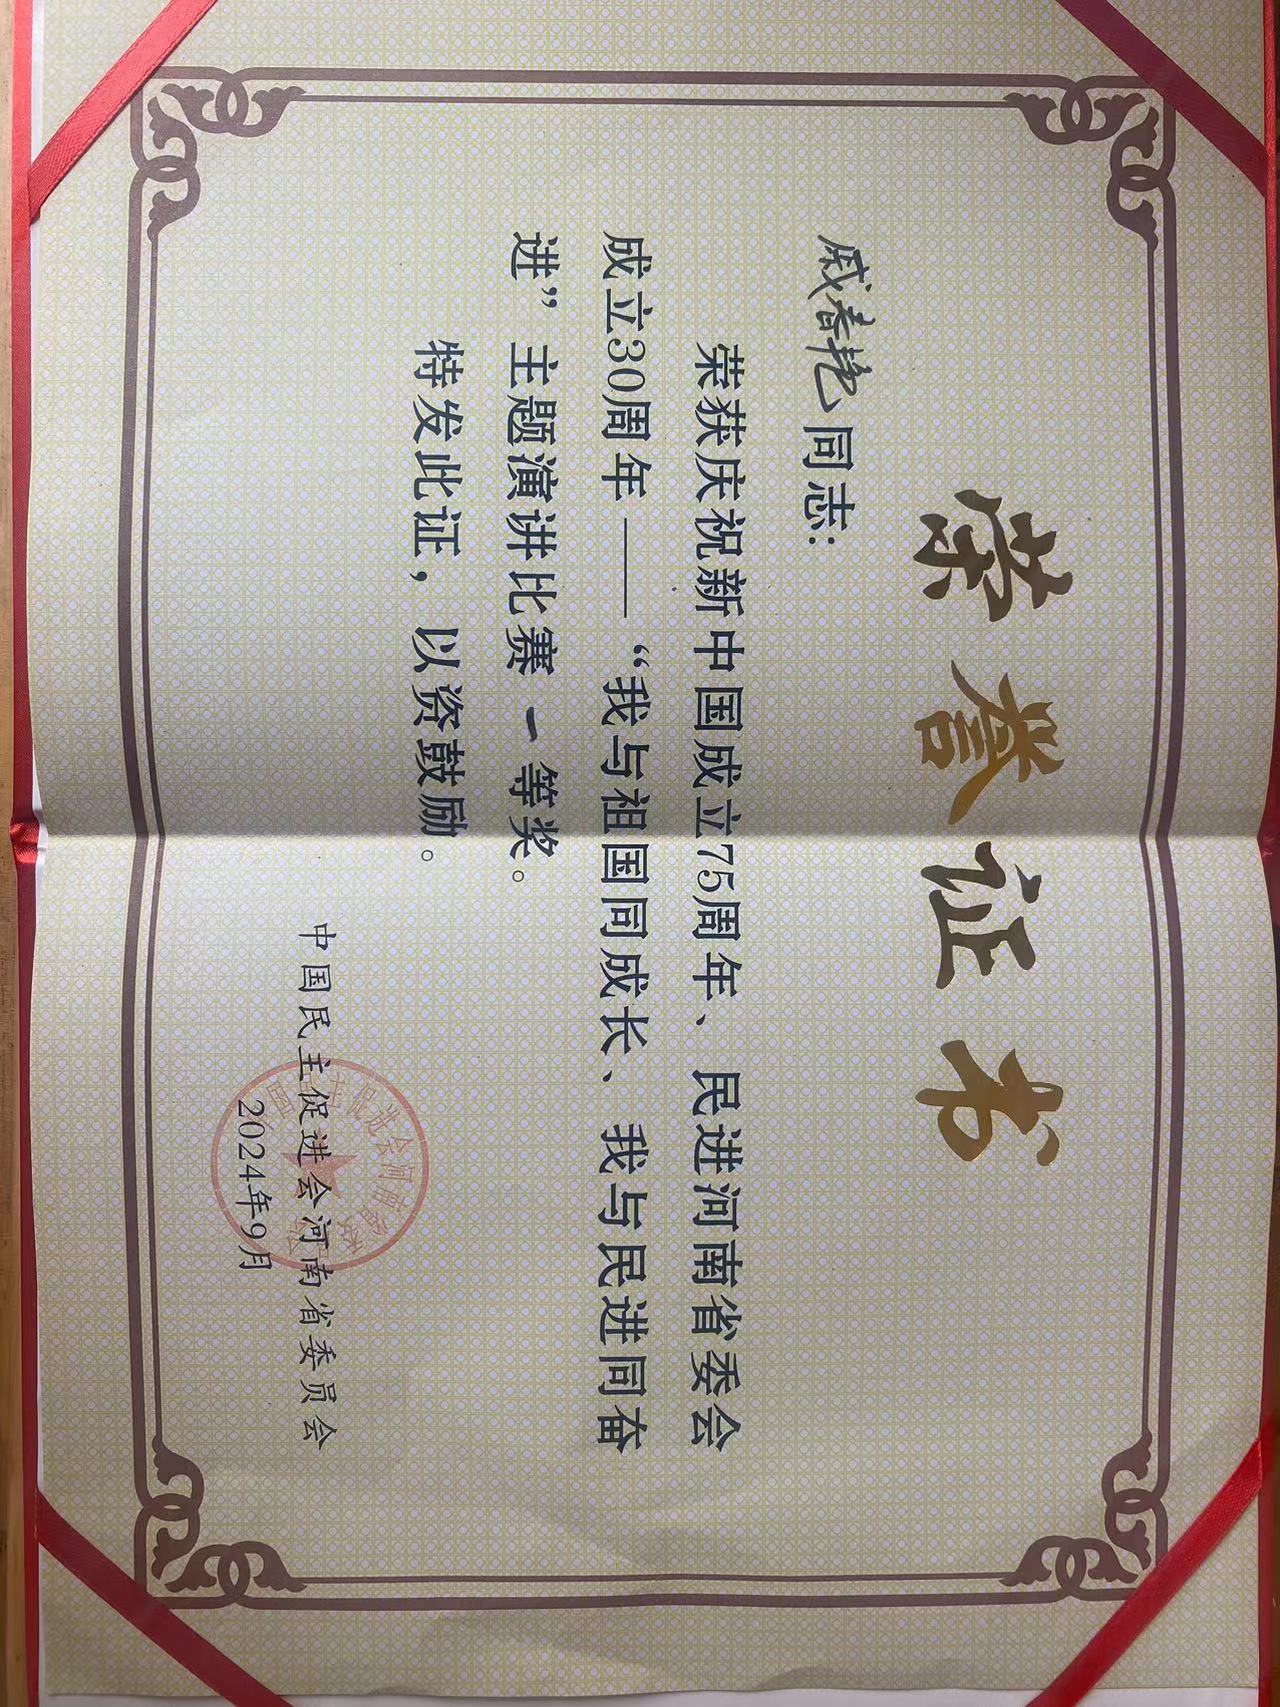 荣誉证书
戚春艳同志:
荣获庆祝新中国成立75周年、民进河南省委会
成立30周年——“我与祖国同成长、我与民进同奋
进”主题演讲比赛一等奖。
特发此证，以资鼓励。
中国民主促进会河南省委员会
2024年9月